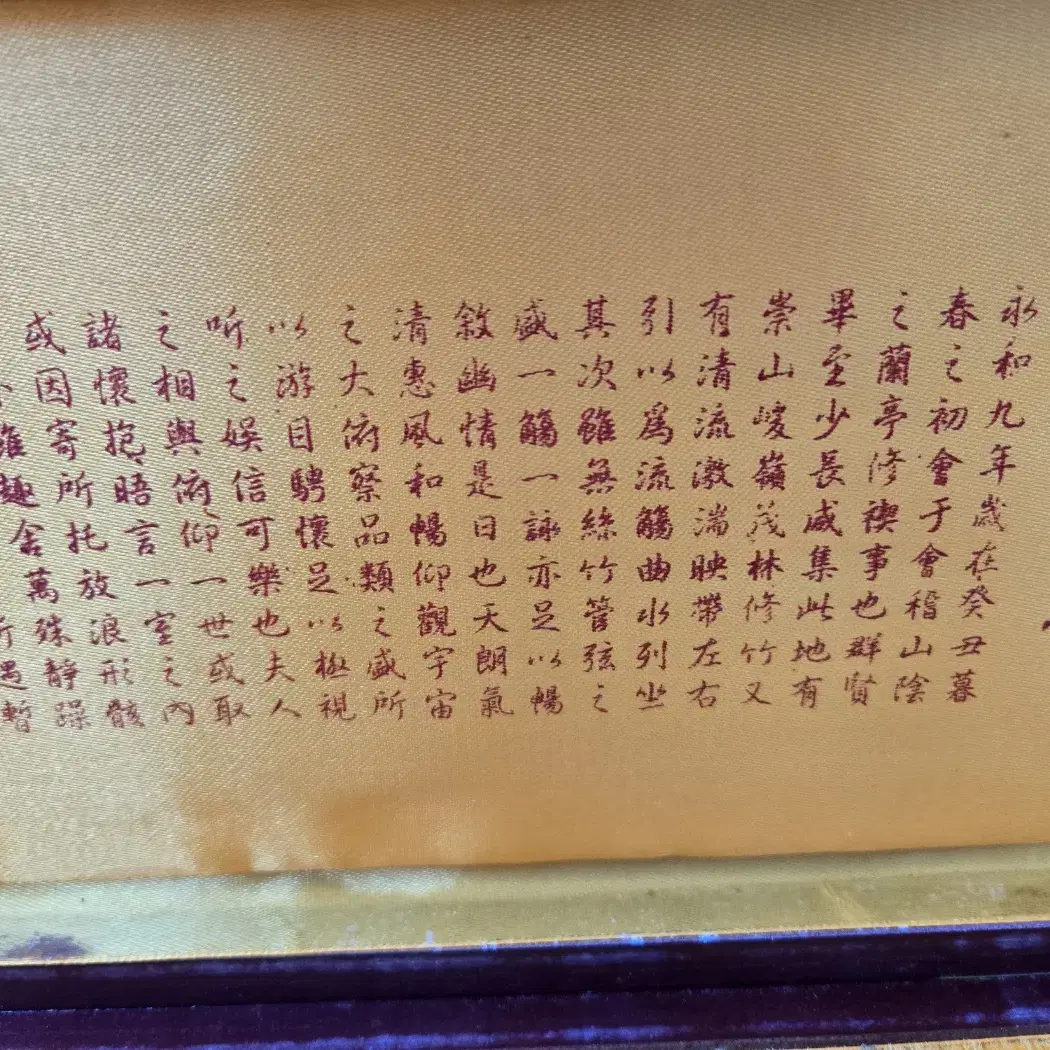 永和九年歲在癸丑暮
春之初會于會稽山陰
之蘭亭修禊事也群賢
畢至少長咸集此地有
崇山峻嶺茂林修竹又
有清流激湍映帶左右
引以爲流觴曲水列坐
其次雖無絲竹管弦之
盛一觴一詠亦足以暢
敘幽情是日也天朗氣
清惠風和暢仰觀宇宙
之大俯察品類之盛所
以游目騁懷足以極視
听之娛信可樂也夫人
之相與俯仰一世或取
諸懷抱晤言一室之內
或因寄所托放浪形骸
雖趣舍萬殊靜躁
遇暫